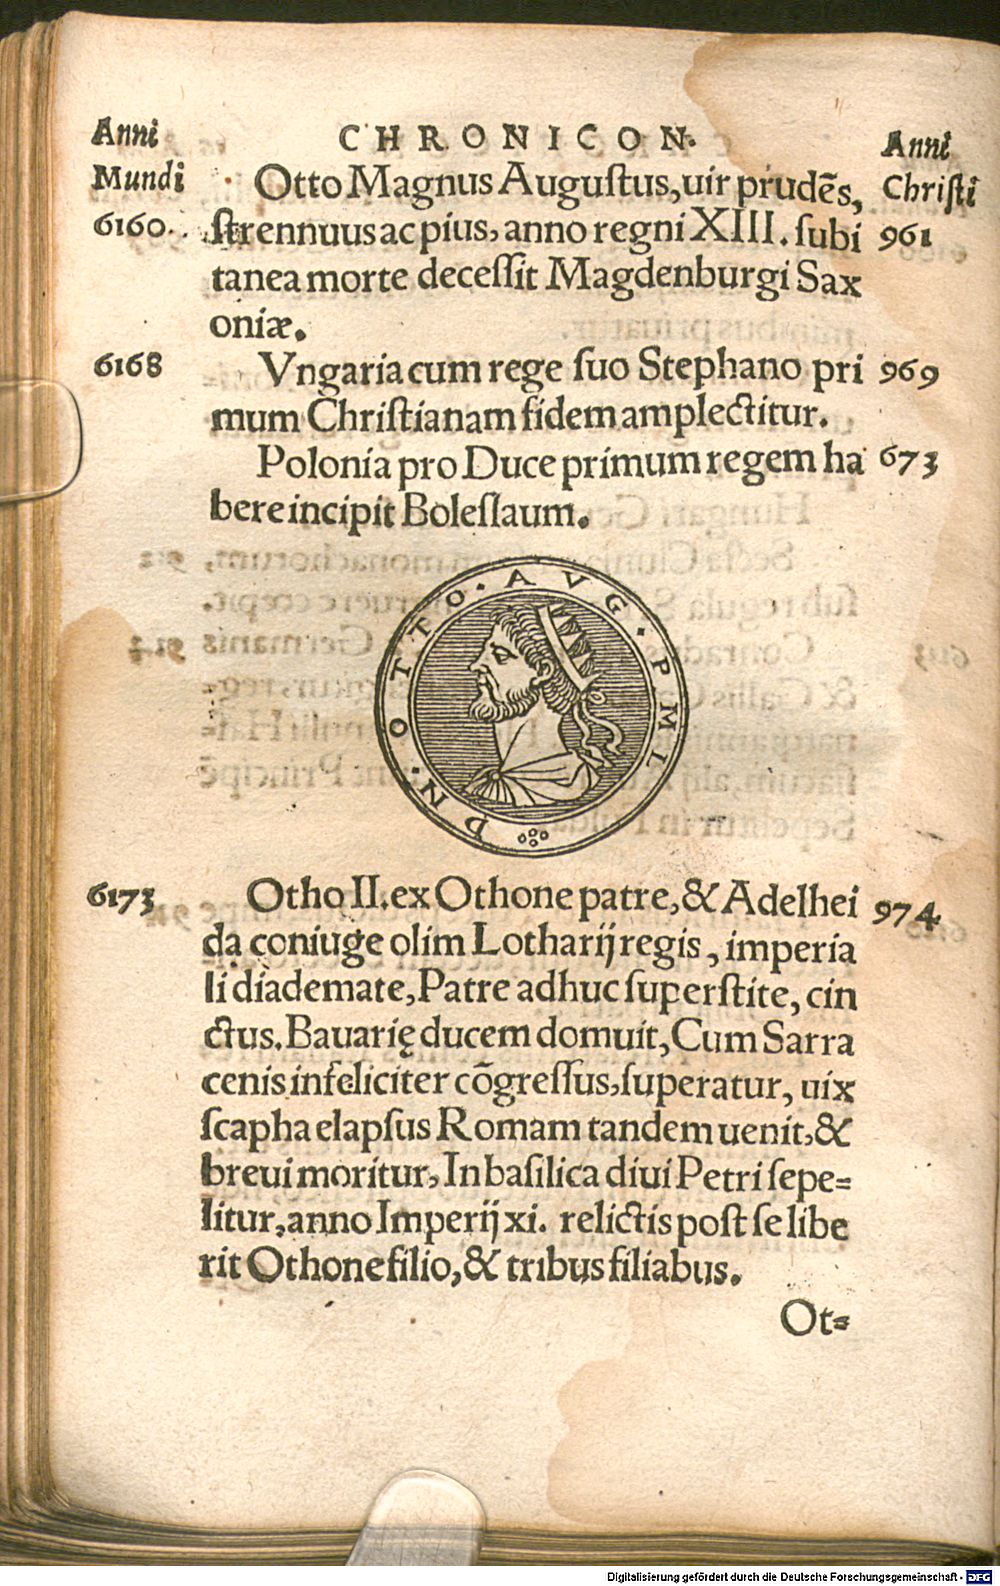 Anni
Mundi
CHRONICON.
Anni
Christi
Otto Magnus Auguſtus, uir prudēs,
6160. ſtrennuus ac pius, anno regni XIII. ſubi 961
tanea morte deceſſit Magdenburgi Sax
oniæ.
6168 Vngaria cum rege ſuo Stephano pri 969
mum Chriſtianam fidem amplectitur.
Polonia pro Duce primum regem ha 673
bere incipit Boleſlaum.
DN · OTTO · AVG · PMI
6173 Otho II. ex Othone patre, & Adelhei 974
da coniuge olim Lotharij regis, imperia
li diademate, Patre adhuc ſuperſtite, cin
ctus. Bauarię ducem domuit, Cum Sarra
cenis infeliciter cōgreſſus, ſuperatur, uix
ſcapha elapſus Romam tandem uenit, &
breui moritur, In baſilica diui Petri ſepe-
litur, anno Imperij xi. relictis poſt ſe libe
rit Othone filio, & tribus filiabus.
Ot-
Digitalisierung gefördert durch die Deutsche Forschungsgemeinschaft - DFG